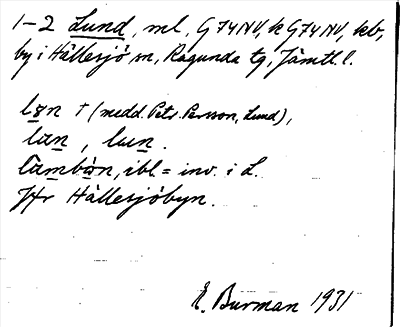 1–2 Lund, ml, G74NV, k G74NV, kb,
by i Hällesjö sn, Ragunda tg, Jämtl. l.
løn † (medd. Petr. Persson, Lund),
lɑn, lun.
lambòn, ibl = inv. i L.
Jfr Hällesjöbyn.
E. Burman 1931